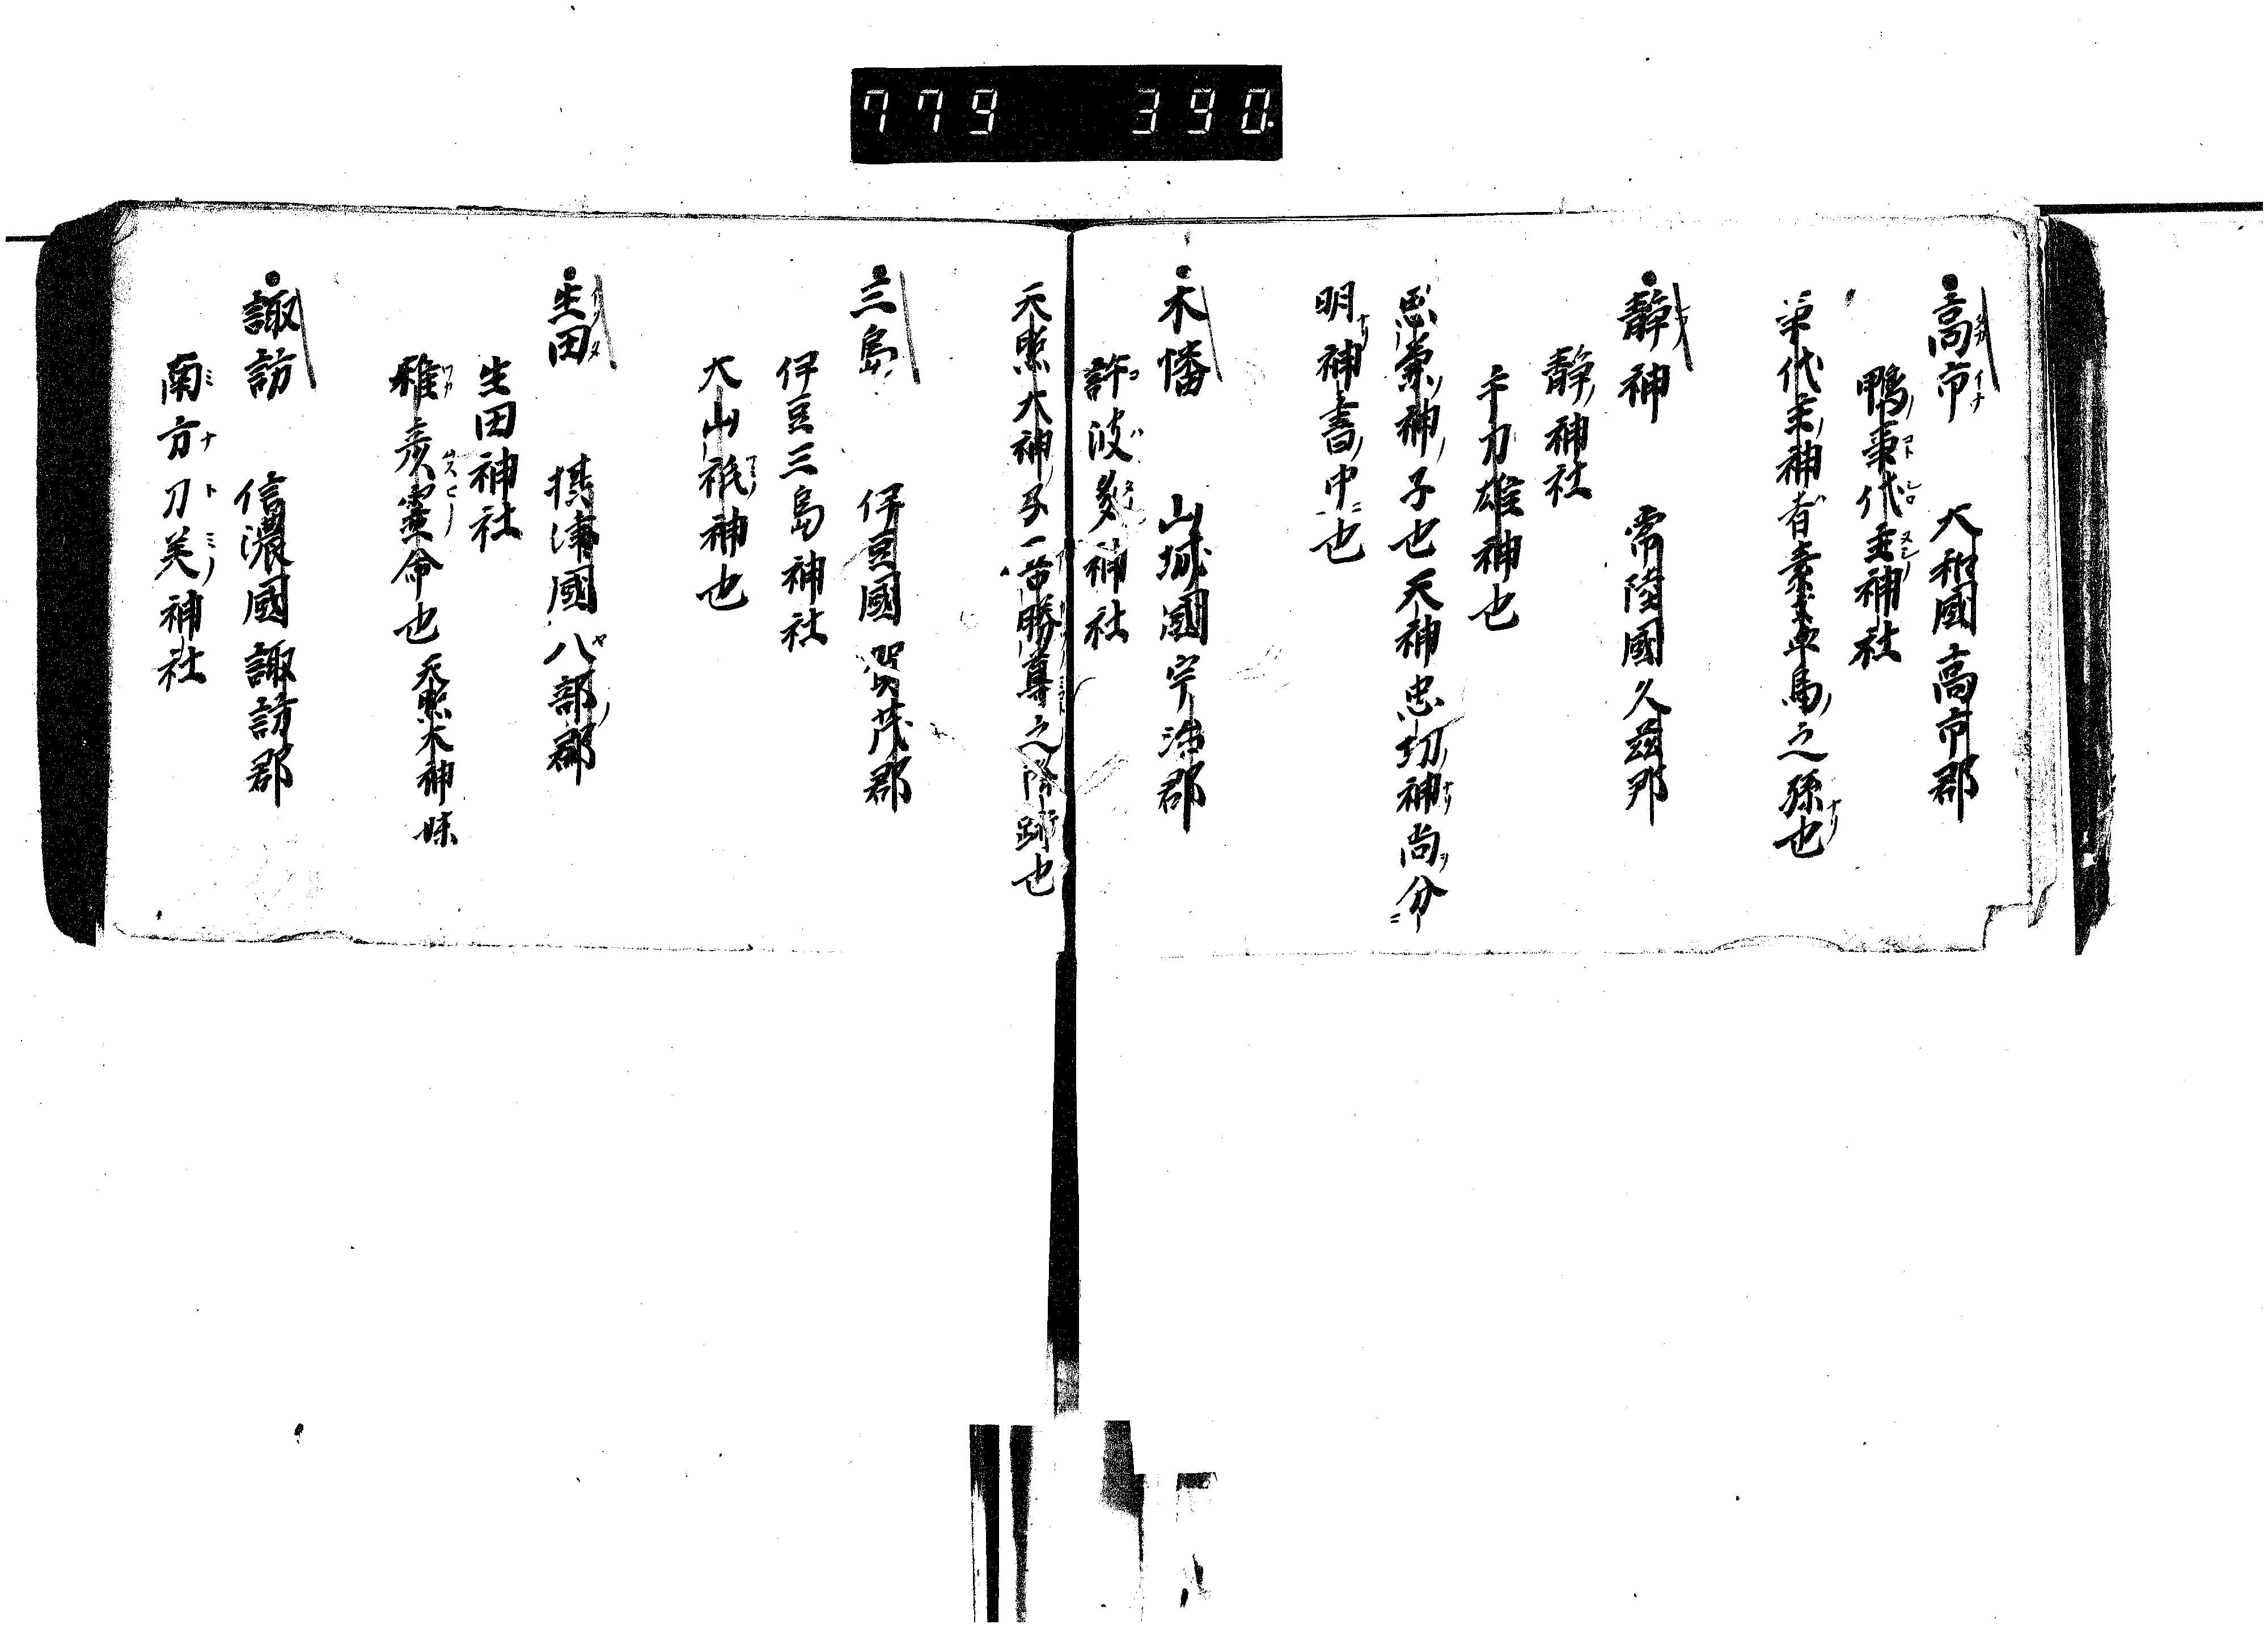 779 390
高市 大和國高市郡
鴨事代主神社
事代主神者素戔烏之孫也
静神 常陸國久茲郡
静神社
手力雄神也
思兼神子也天神忠切神尚分
明神書中也
木幡 山城國宇治郡
許波多神社
天照大神子 勝尊之降跡也
三島 伊豆國賀茂郡
伊豆三島神社
大山祇神也
生田 摂津國八部郡
生田神社
稚彦靈命也 天照大神妹
諏訪 信濃國諏訪郡
南方刀美神社